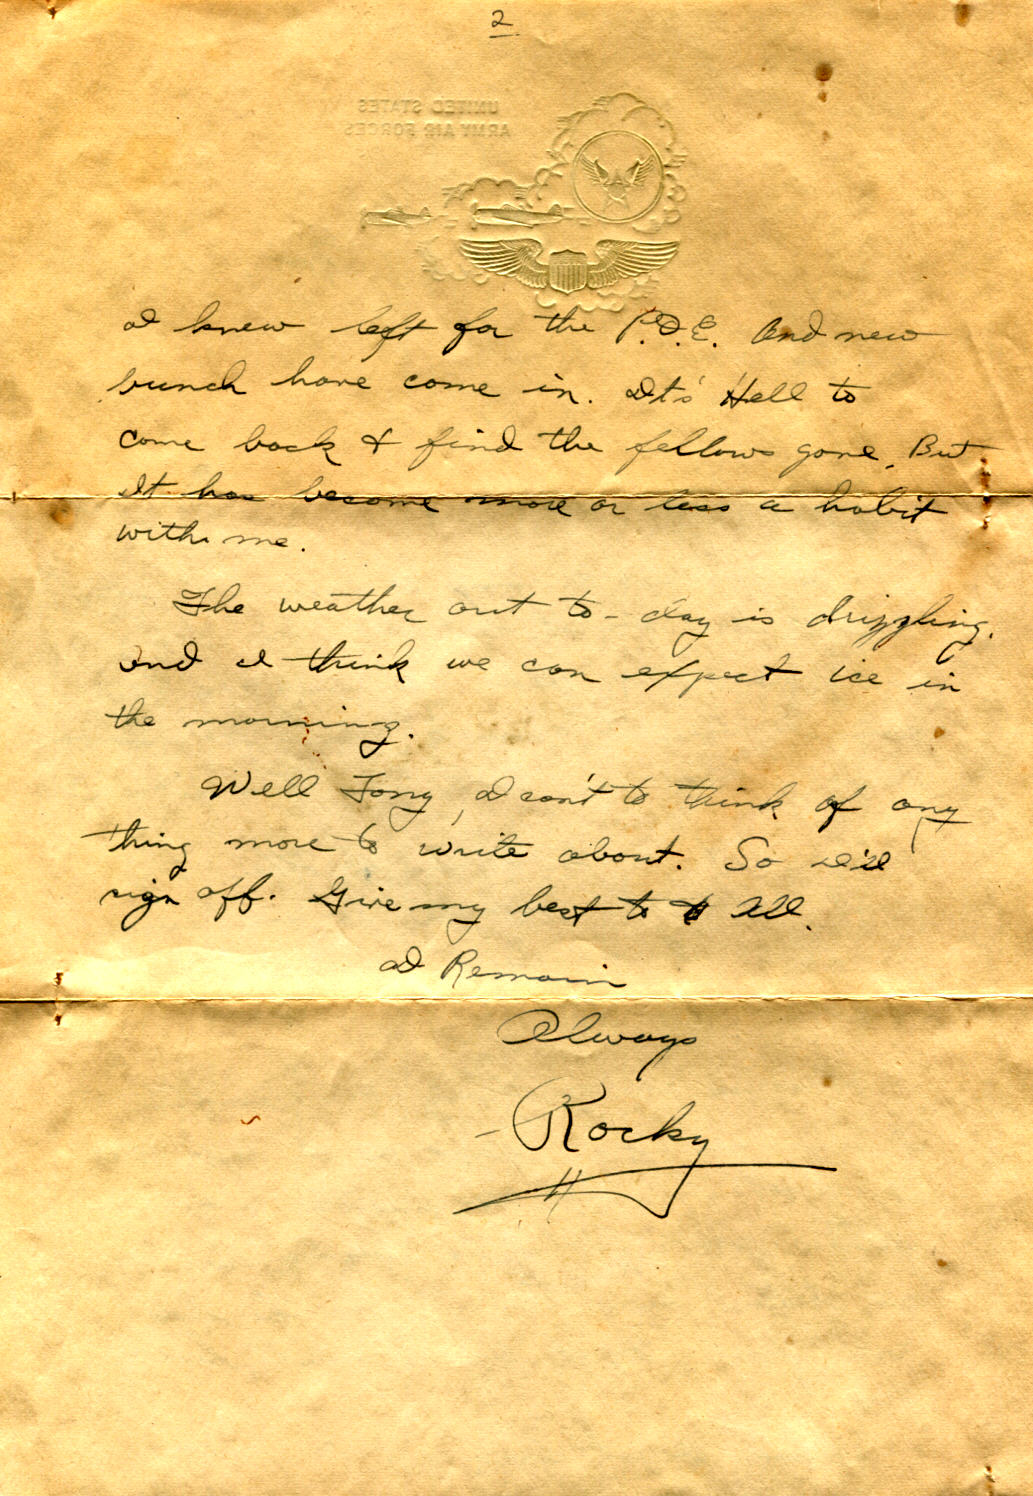 2
UNITED STATES
ARMY AIR FORCES
I knew left for the P.O.E. And new
bunch have come in. It's Hell to
come back & find the fellows gone. But
It has become more or less a habit
with me.
The weather out to-day is drizzling.
and I think we can expect ice in
the morning.
Well Tony, I can't to think of any
thing more to write about. So I'll
sign off. Give my best to All.
I Remain
Always
- Rocky